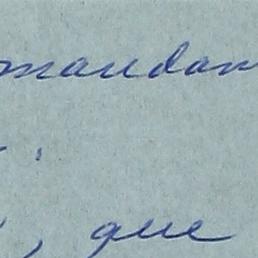 mandam
:
, que